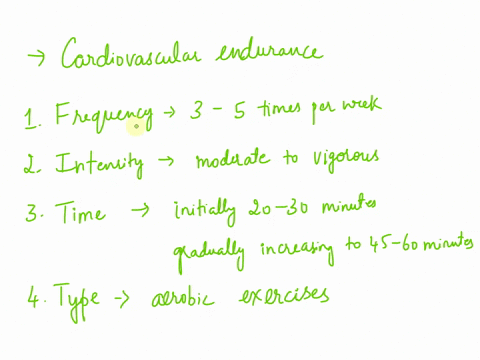 → Cardiovascular endurance
1. Frequency → 3 - 5 times per week
2. Intensity → moderate to vigorous
3. Time → initially 20-30 minutes
gradually increasing to 45-60 minutes
4. Type → aerobic exercises